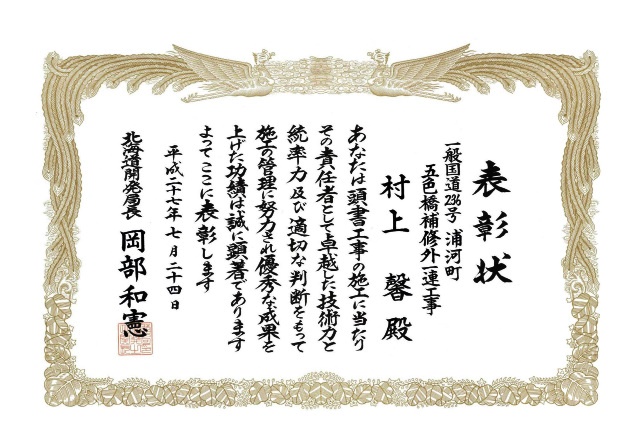 表彰状
一般国道236号 浦河町
五色橋補修外一連工事
村上 馨 殿
あなたは頭書工事の施工に当たり
その責任者として卓越した技術力と
統率力及び適切な判断をもって
施工の管理に努力され優秀な成果を
上げた功績は誠に顕著であります
よってここに表彰します
平成二十七年七月二十四日
北海道開発局長 岡部和憲